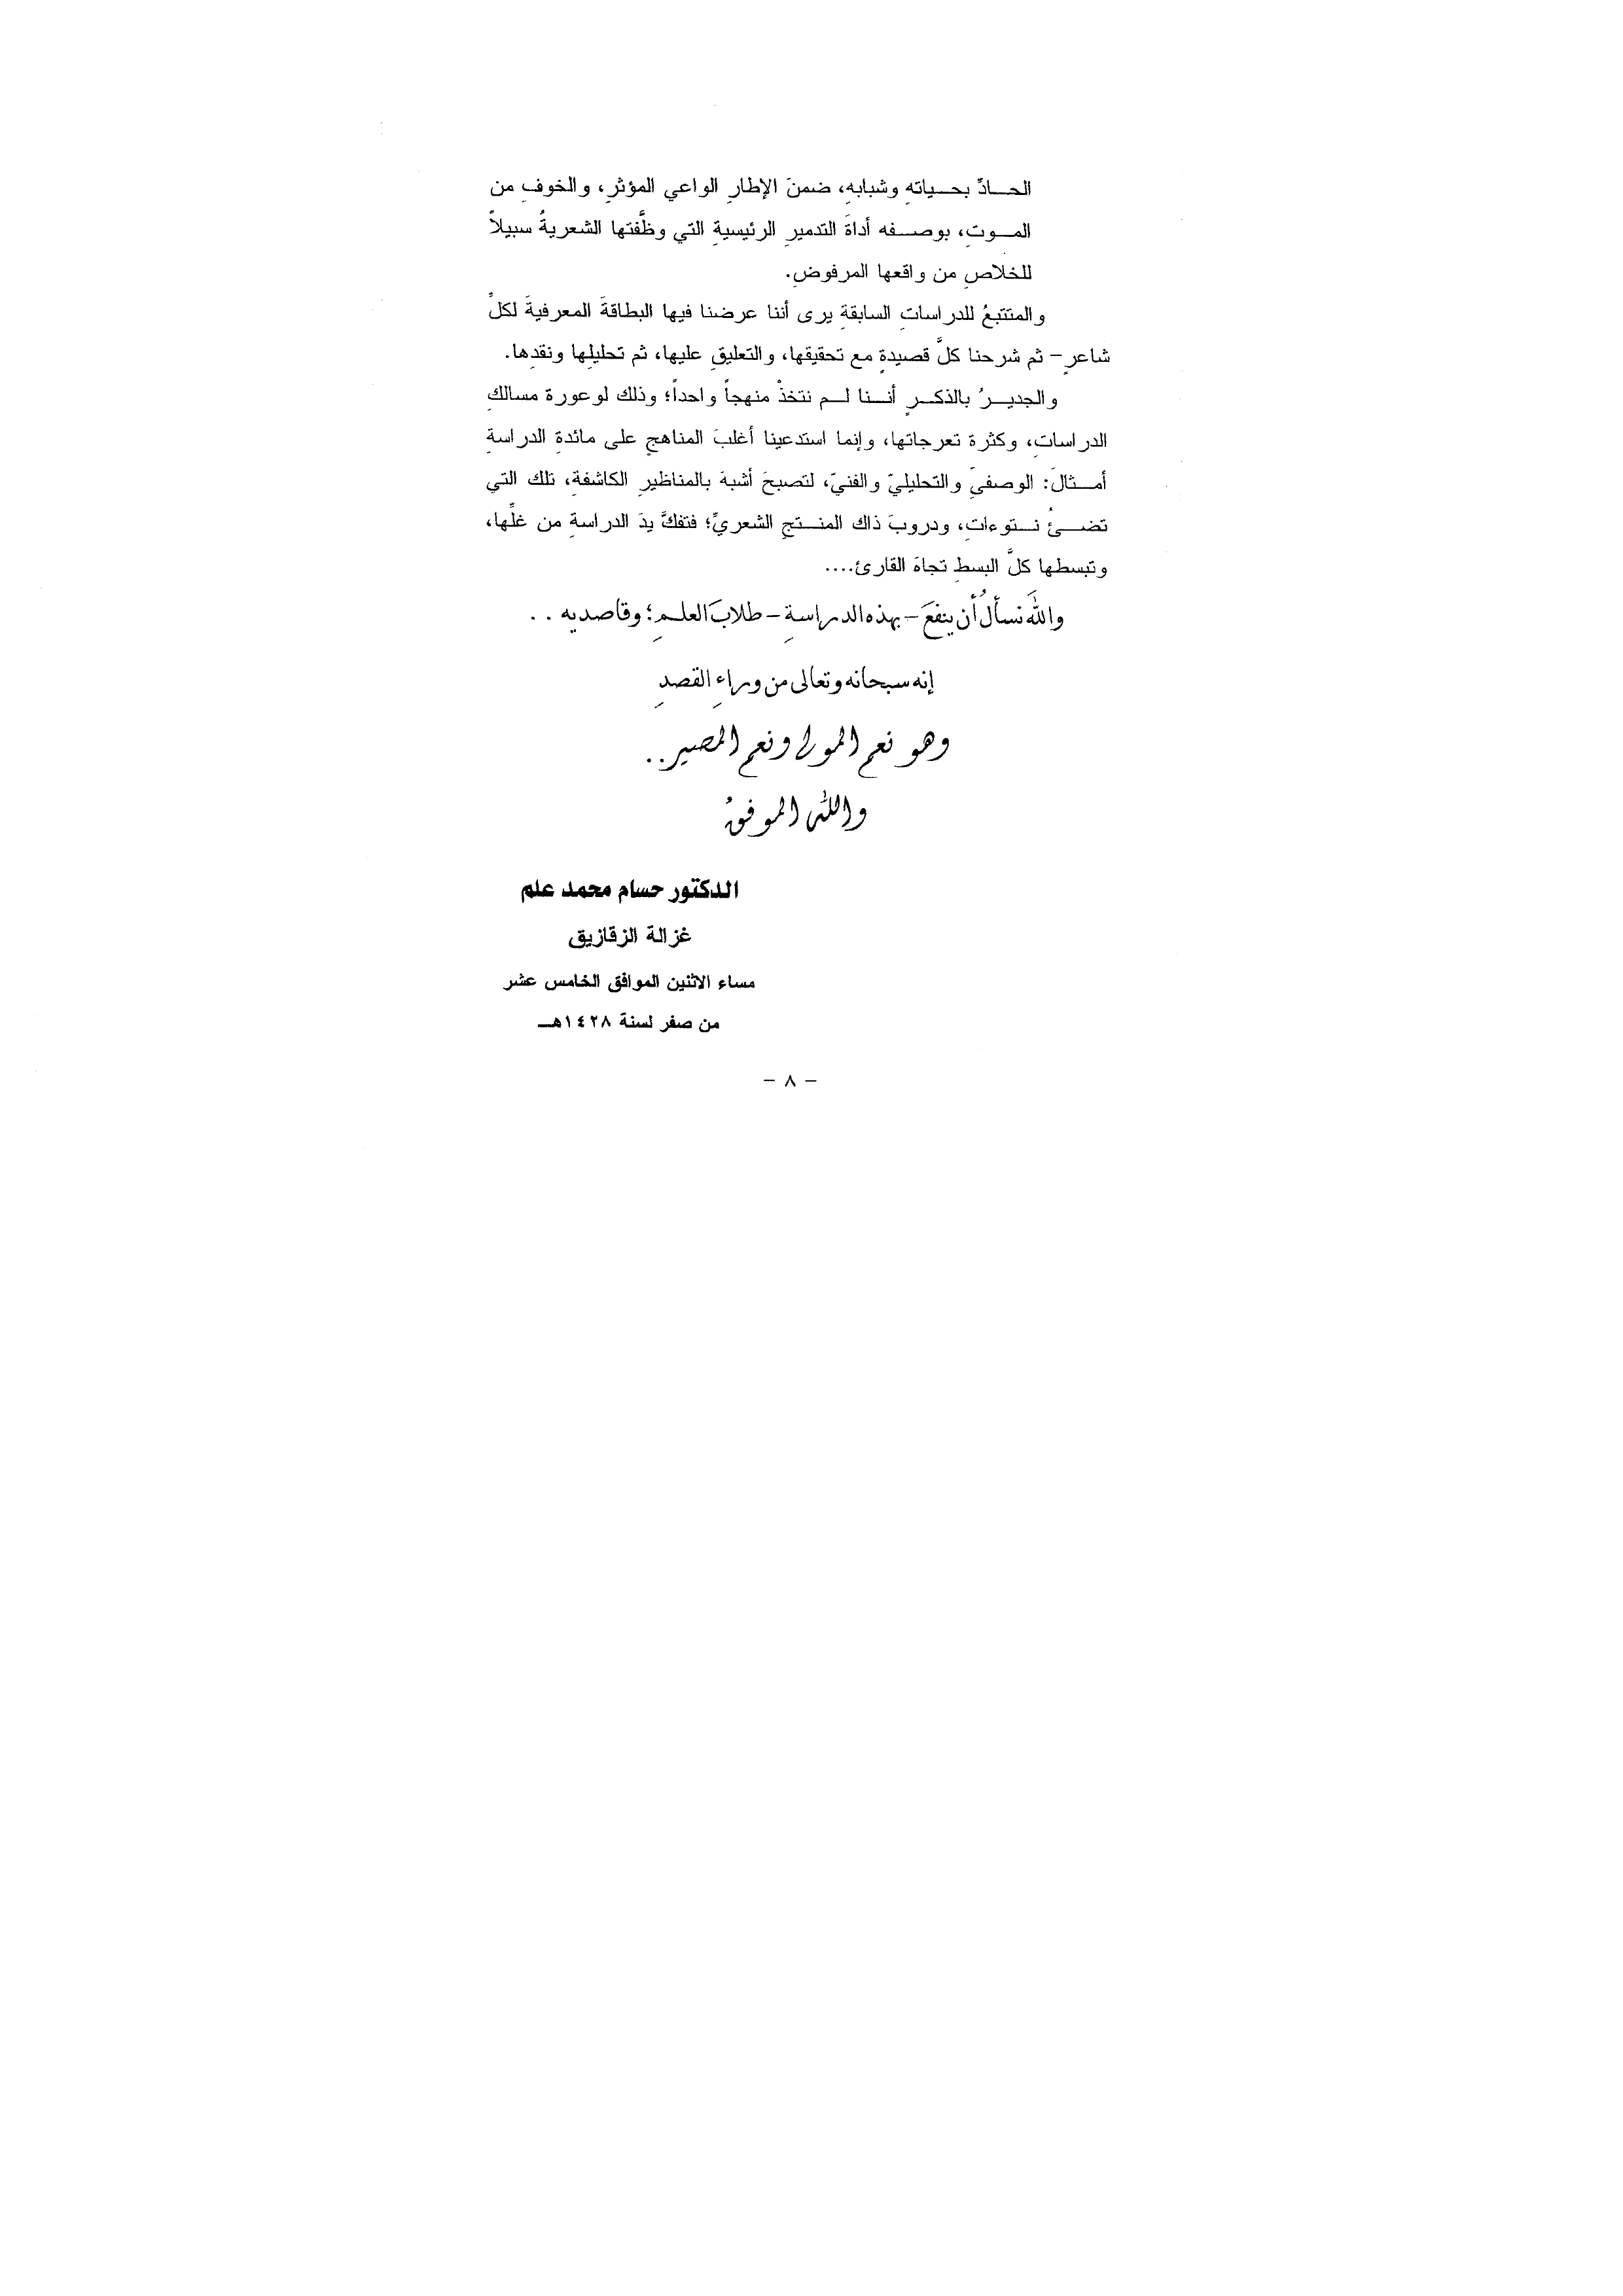 الحـــادِّ بحـــياتهِ وشبابهِ، ضمنَ الإطارِ الواعي المؤثرِ، والخوفِ من
المـــوتِ، بوصـــفه أداةَ التدميرِ الرئيسيةِ التي وظَّفتها الشعريةُ سبيلاً
للخلاصِ من واقعها المرفوضِ.
والمتتبعُ للدراساتِ السابقةِ يرى أننا عرضنا فيها البطاقةَ المعرفيةَ لكلِّ
شاعرٍ – ثم شرحنا كلَّ قصيدةٍ مع تحقيقها، والتعليقِ عليها، ثم تحليلِها ونقدِها.
والجديـــرُ بالذكـــرِ أنـــنا لـــم نتخذْ منهجاً واحداً؛ وذلك لوعورة مسالكِ
الدراساتِ، وكثرة تعرجاتها، وإنما استدعينا أغلبَ المناهجِ على مائدةِ الدراسةِ
أمـــثالَ: الوصفيِّ والتحليليِّ والفنيِّ، لتصبحَ أشبهَ بالمناظيرِ الكاشفةِ، تلك التي
تضـــئُ نـــتوءاتِ، ودروبَ ذاك المنـــتجِ الشعريِّ؛ فتفكَّ يدَ الدراسةِ من غلِّها،
وتبسطها كلَّ البسطِ تجاهَ القارئ....
واللهَ نسألُ أن ينفعَ – بهذه الدراسةِ – طلابَ العلمِ؛ وقاصديه ..
إنه سبحانه وتعالى من وراءِ القصدِ
وهو نعم المولى ونعم المصير..
والله الموفقُ
الدكتور حسام محمد علم
غزالة الزقازيق
مساء الاثنين الموافق الخامس عشر
من صفر لسنة ١٤٢٨هـــ
– ٨ –